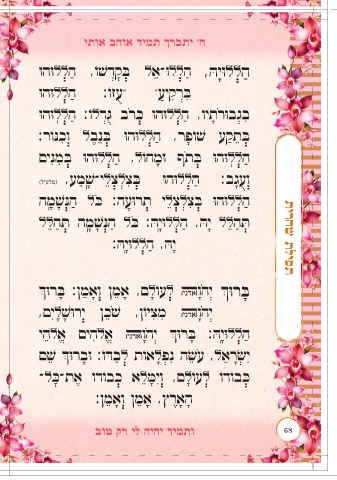 ה' יתברך תמיד אוהב אותי
הַלְלוּיָהּ, הַלְלוּ־אֵל בְּקָדְשׁוֹ, הַלְלוּהוּ
בִּרְקִיעַ עֻזּוֹ: הַלְלוּהוּ
בִגְבוּרֹתָיו, הַלְלוּהוּ כְּרֹב גֻּדְלוֹ: הַלְלוּהוּ
בְּתֵקַע שׁוֹפָר, הַלְלוּהוּ בְּנֵבֶל וְכִנּוֹר:
הַלְלוּהוּ בְּתֹף וּמָחוֹל, הַלְלוּהוּ בְּמִנִּים
וְעֻגָב: הַלְלוּהוּ בְצִלְצְלֵי־שָׁמַע, (מלעיל)
הַלְלוּהוּ בְּצִלְצְלֵי תְרוּעָה: כֹּל הַנְּשָׁמָה
תְּהַלֵּל יָהּ, הַלְלוּיָהּ: כֹּל הַנְּשָׁמָה תְּהַלֵּל
יָהּ, הַלְלוּיָהּ:
בָּרוּךְ יְהֹוָה לְעוֹלָם, אָמֵן וְאָמֵן: בָּרוּךְ
יְהֹוָה מִצִּיּוֹן, שֹׁכֵן יְרוּשָׁלָיִם,
הַלְלוּיָהּ: בָּרוּךְ יְהֹוָה אֱלֹהִים אֱלֹהֵי
יִשְׂרָאֵל, עֹשֵׂה נִפְלָאוֹת לְבַדּוֹ: וּבָרוּךְ שֵׁם
כְּבוֹדוֹ לְעוֹלָם, וְיִמָּלֵא כְבוֹדוֹ אֶת־כָּל־
הָאָרֶץ, אָמֵן וְאָמֵן:
ותמיד יהיה לי רק טוב
תפילת שחרית
68